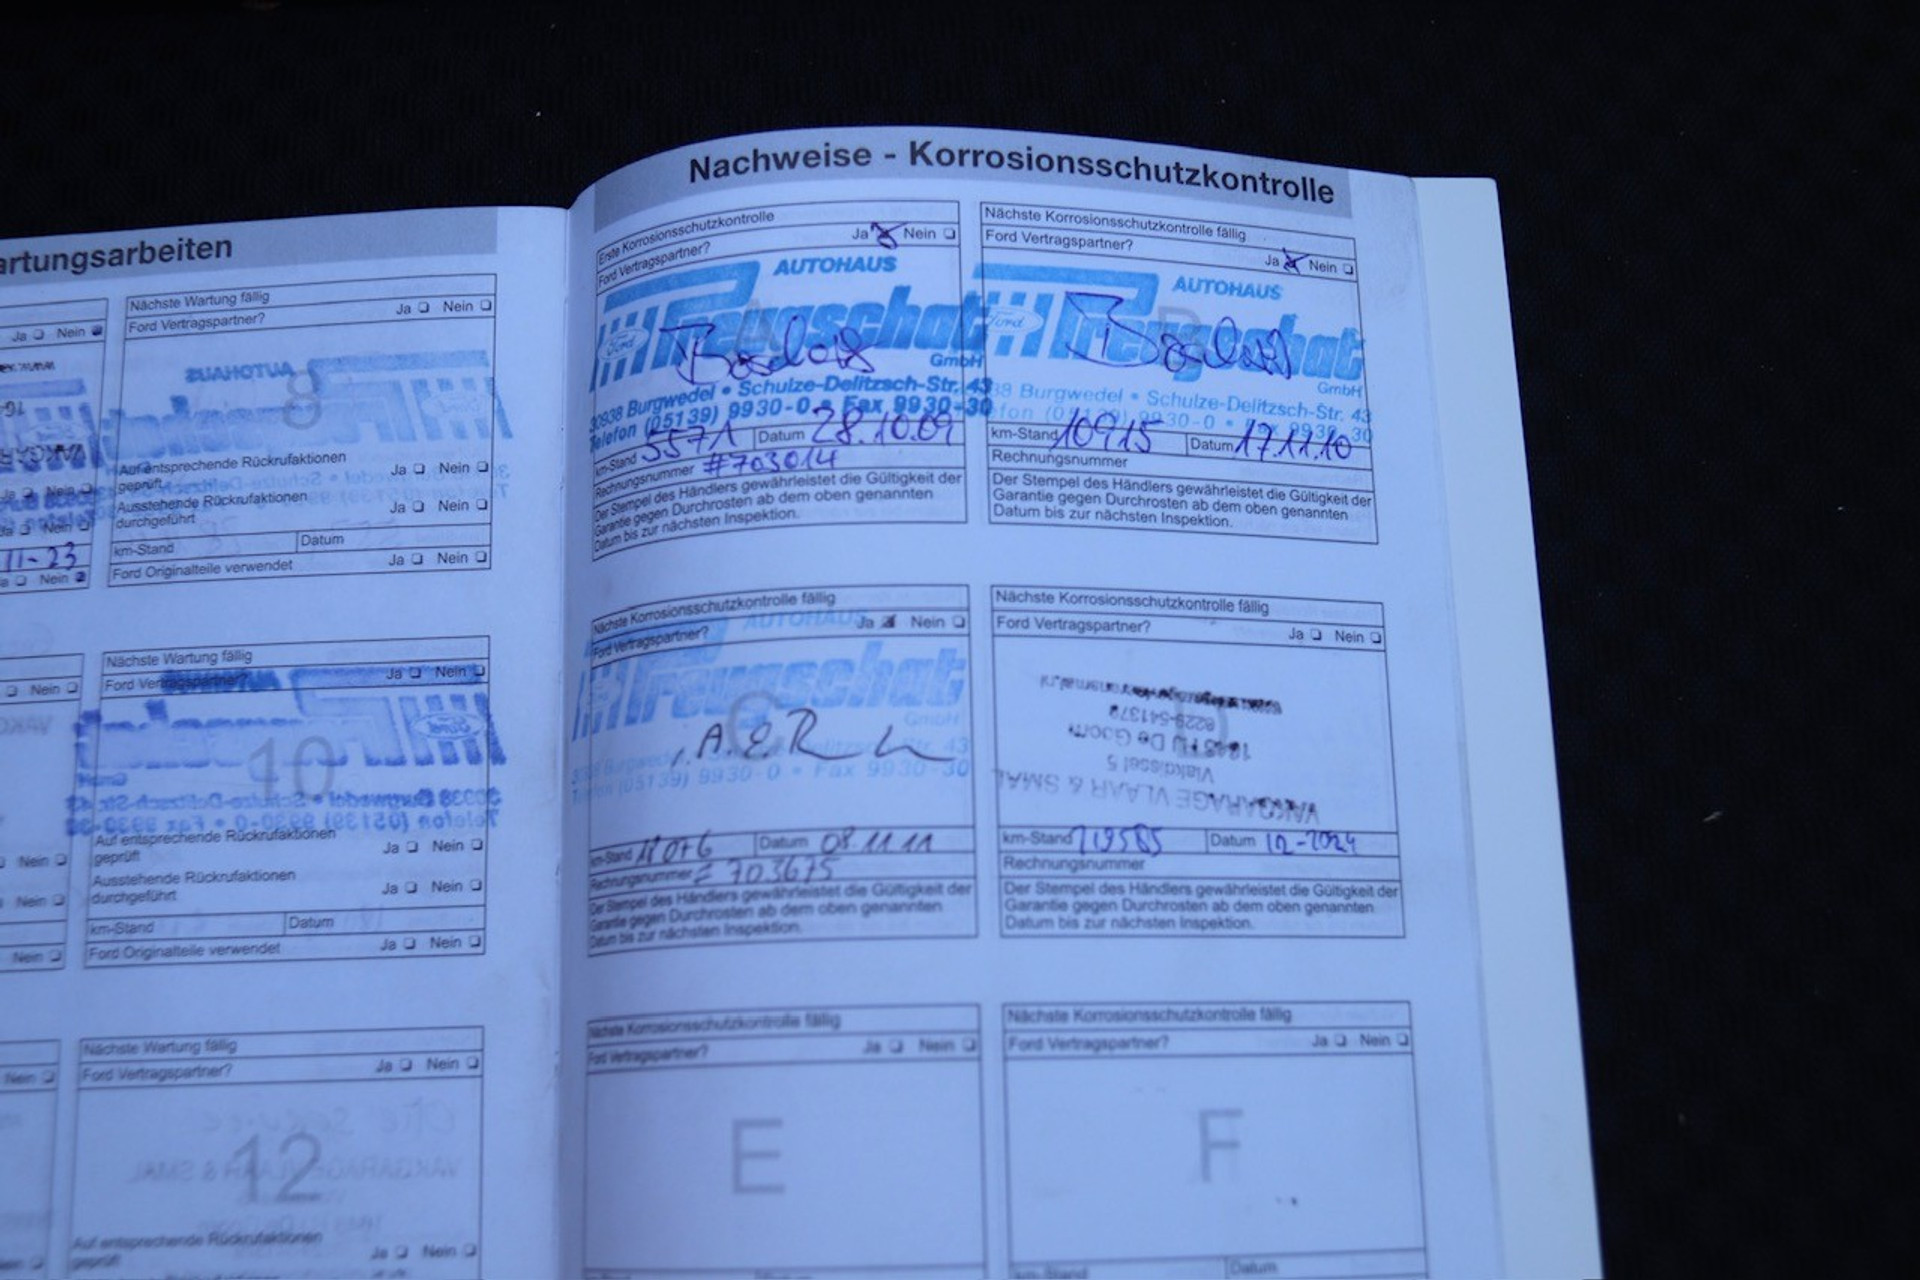 artungsarbeiten
Ja Nein
Nächste Wartung fällig
Ford Vertragspartner? Ja Nein
AUTOHAUS
8
Auf entsprechende Rückrufaktionen
geprüft Ja Nein
Ausstehende Rückrufaktionen
durchgeführt Ja Nein
km-Stand Datum
Ford Originalteile verwendet Ja Nein
11-23
Nein
Nächste Wartung fällig
Ford Vertragspartner? Ja Nein
10
30938 Burgwedel • Schulze-Delitzsch-Str. 43
Telefon (05139) 9930-0 • Fax 9930-30
Auf entsprechende Rückrufaktionen
geprüft Ja Nein
Ausstehende Rückrufaktionen
durchgeführt Ja Nein
km-Stand Datum
Ford Originalteile verwendet Ja Nein
Nein
Nächste Wartung fällig
Ford Vertragspartner? Ja Nein
12
VAKGARAGE VLAAR & SMAL
Auf entsprechende Rückrufaktionen
geprüft Ja Nein
Nachweise - Korrosionsschutzkontrolle
Erste Korrosionsschutzkontrolle
Ford Vertragspartner? Ja Nein
AUTOHAUS
Ford Preugschat
GmbH
30938 Burgwedel • Schulze-Delitzsch-Str. 43
Telefon (05139) 9930-0 • Fax 9930-30
km-Stand 5571 Datum 28.10.09
Rechnungsnummer #703014
Der Stempel des Händlers gewährleistet die Gültigkeit der
Garantie gegen Durchrosten ab dem oben genannten
Datum bis zur nächsten Inspektion.
Nächste Korrosionsschutzkontrolle fällig
Ford Vertragspartner?
Ja Nein
AUTOHAUS
Ford Preugschat
GmbH
38 Burgwedel • Schulze-Delitzsch-Str. 43
fon (05139) 9930-0 • Fax 9930-30
km-Stand 10915 Datum 17.11.10
Rechnungsnummer
Der Stempel des Händlers gewährleistet die Gültigkeit der
Garantie gegen Durchrosten ab dem oben genannten
Datum bis zur nächsten Inspektion.
Nächste Korrosionsschutzkontrolle fällig
Ford Vertragspartner? Ja Nein
AUTOHAUS
Preugschat
C
GmbH
30938 Burgwedel • Schulze-Delitzsch-Str. 43
Telefon (05139) 9930-0 • Fax 9930-30
km-Stand 18076 Datum 08.11.11
Rechnungsnummer 703675
Der Stempel des Händlers gewährleistet die Gültigkeit der
Garantie gegen Durchrosten ab dem oben genannten
Datum bis zur nächsten Inspektion.
Nächste Korrosionsschutzkontrolle fällig
Ford Vertragspartner? Ja Nein
D
De Goorn
Vlakdissel 5
VAKGARAGE VLAAR & SMAL
km-Stand 119585 Datum 12-2024
Rechnungsnummer
Der Stempel des Händlers gewährleistet die Gültigkeit der
Garantie gegen Durchrosten ab dem oben genannten
Datum bis zur nächsten Inspektion.
Nächste Korrosionsschutzkontrolle fällig
Ford Vertragspartner? Ja Nein
E
Nächste Korrosionsschutzkontrolle fällig
Ford Vertragspartner? Ja Nein
F
km-Stand Datum